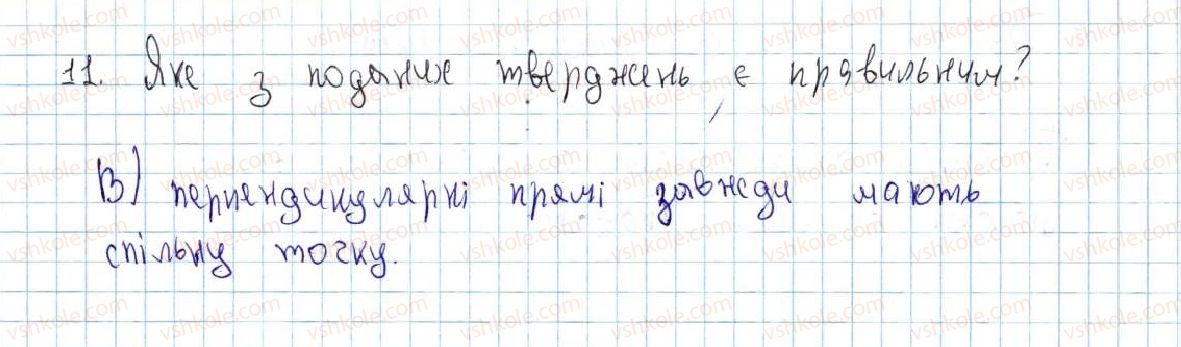 11. Яке з поданих тверджень є правильним?
В) перпендикулярні прямі завжди мають
спільну точку.